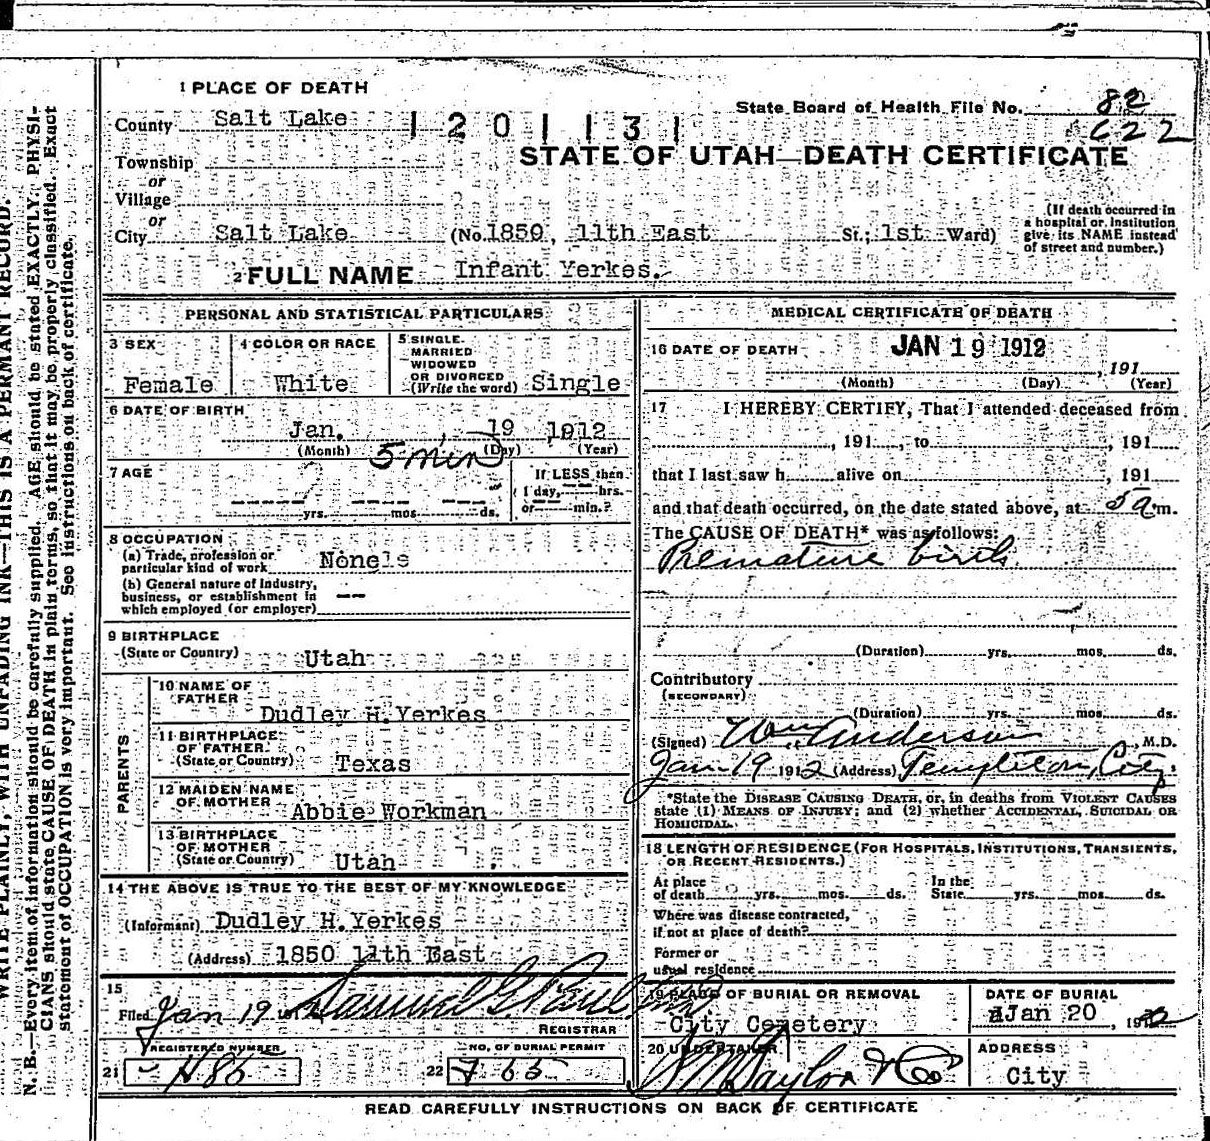 1 PLACE OF DEATH
State Board of Health File No. 82
622
County Salt Lake
1201131
STATE OF UTAH—DEATH CERTIFICATE
Township
or
Village
or
City Salt Lake (No. 1850, 11th East St.; 1st Ward)
(If death occurred in a hospital or institution give its NAME instead of street and number.)
2 FULL NAME Infant Yerkes.
PERSONAL AND STATISTICAL PARTICULARS
3 SEX
Female
4 COLOR OR RACE
White
5 SINGLE.
MARRIED
WIDOWED
OR DIVORCED
(Write the word) Single
6 DATE OF BIRTH
Jan. , 19 1912
(Month) (Day) (Year)
5 min
7 AGE
yrs. mos ds.
If LESS then
1 day, -- hrs.
or -- min.?
8 OCCUPATION
(a) Trade, profession or
particular kind of work
(b) General nature of Industry,
business, or establishment in
which employed (or employer) --
9 BIRTHPLACE
(State or Country) Utah
PARENTS
10 NAME OF
FATHER
Dudley H. Yerkes
11 BIRTHPLACE
OF FATHER.
(State or Country) Texas
12 MAIDEN NAME
OF MOTHER
Abbie Workman
13 BIRTHPLACE
OF MOTHER
(State or Country) Utah
14 THE ABOVE IS TRUE TO THE BEST OF MY KNOWLEDGE
(Informant) Dudley H. Yerkes
(Address) 1850 11th East
15
Filed Jan 19 Samuel G. Paul
REGISTRAR
REGISTERED NUMBER
21 H85
NO. OF BURIAL PERMIT
22 765
MEDICAL CERTIFICATE OF DEATH
16 DATE OF DEATH JAN 19 1912
, 191
(Month) (Day) (Year)
17 I HEREBY CERTIFY, That I attended deceased from
, 191 , to , 191
that I last saw h alive on , 191
and that death occurred, on the date stated above, at 5 a m.
The CAUSE OF DEATH* was as follows:
Premature birth
(Duration) yrs. mos. ds.
Contributory
(SECONDARY)
(Duration) yrs. mos. ds.
(Signed) Wm. Anderson, M.D.
Jan 19 1912 (Address) Templeton, City
*State the DISEASE CAUSING DEATH, or, in deaths from VIOLENT CAUSES
state (1) MEANS OF INJURY; and (2) whether ACCIDENTAL, SUICIDAL OR
HOMICIDAL.
18 LENGTH OF RESIDENCE (FOR HOSPITALS, INSTITUTIONS, TRANSIENTS,
OR RECENT RESIDENTS.)
At place
of death yrs. mos. ds.
In the
State yrs. mos. ds.
Where was disease contracted,
if not at place of death?
Former or
usual residence
19 PLACE OF BURIAL OR REMOVAL
City Cemetery
DATE OF BURIAL
Jan 20 , 1912
20 UNDERTAKER
Taylor & Co
ADDRESS
City
READ CAREFULLY INSTRUCTIONS ON BACK OF CERTIFICATE
WRITE PLAINLY, WITH UNFADING INK—THIS IS A PERMANT RECORD.
N. B.—Every item of information should be carefully supplied. AGE should be stated EXACTLY. PHYSI-
CIANS should state CAUSE OF DEATH in plain terms, so that it may be properly classified. Exact
statement of OCCUPATION is very important. See instructions on back of certificate.